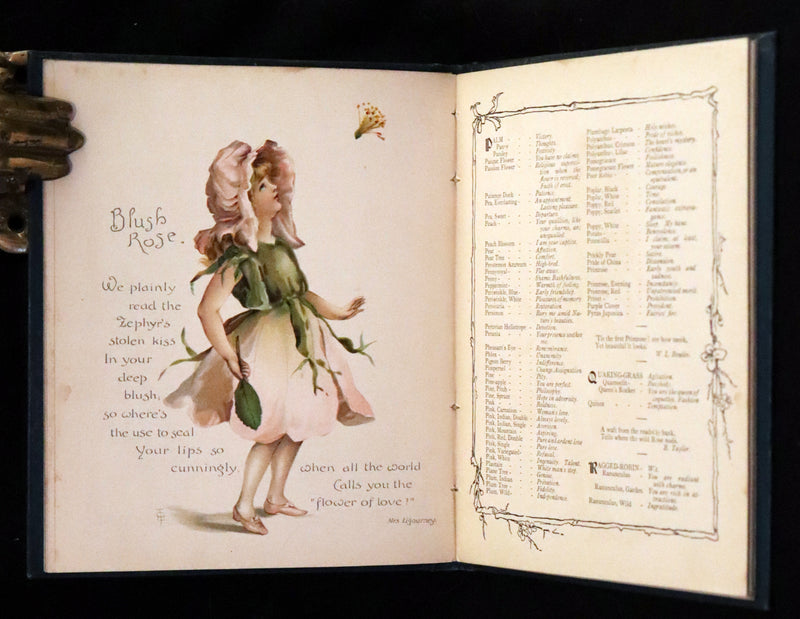 Blush
Rose.
We plainly
read the
Zephyr's
stolen kiss
In your
deep
blush,
so where's
the use to seal
Your lips so
cunningly,
when all the world
Calls you the
"flower of love?"
Mrs Sigourney.
PALM - - - Victory.
Pansy - - - Thoughts.
Parsley - - - Festivity.
Pasque Flower - - You have no claims.
Passion Flower - - Religious supersti-
tion when the
flower is reversed,
Faith if erect.
Patience Dock - - Patience.
Pea, Everlasting - - An appointment.
Lasting pleasure.
Pea, Sweet - - Departure.
Peach - - - Your qualities, like
your charms, are
unequalled.
Peach Blossom - - I am your captive.
Pear - - - Affection.
Pear Tree - - Comfort.
Penstemon Azureum - High-bred.
Pennyroyal - - Flee away.
Peony - - - Shame, Bashfulness.
Peppermint - - Warmth of feeling.
Periwinkle, Blue - - Early friendship.
Periwinkle, White - Pleasures of memory.
Persicaria - - Restoration.
Persimon - - Bury me amid Na-
ture's beauties.
Peruvian Heliotrope - Devotion.
Petunia - - Your presence soothes
me.
Pheasant's Eye - - Remembrance.
Phlox - - - Unanimity
Pigeon Berry - - Indifference.
Pimpernel - - Change. Assignation
Pine - - - Pity.
Pine-apple - - You are perfect.
Pine, Pitch - - Philosophy.
Pine, Spruce - - Hope in adversity.
Pink - - - Boldness.
Pink, Carnation - - Woman's love.
Pink, Indian, Double - Always lovely.
Pink, Indian, Single - Aversion.
Pink, Mountain - - Aspiring.
Pink, Red, Double - Pure and ardent love
Pink, Single - - Pure love.
Pink, Variegated - - Refusal.
Pink, White - - Ingenuity. Talent.
Plantain - - White man's foot.
Plane Tree - - Genius.
Plum, Indian - - Privation.
Plum Tree - - Fidelity.
Plum, Wild - - Independence.
Plumbago Larpenta - Holy wishes.
Polyanthus - - Pride of riches.
Polyanthus, Crimson - The heart's mystery.
Polyanthus, Lilac - Confidence.
Pomegranate - - Foolishness.
Pomegranate Flower - Mature elegance.
Poor Robin - - Compensation, or an
equivalent.
Poplar, Black - - Courage
Poplar, White - - Time.
Poppy, Red - - Consolation.
Poppy, Scarlet - - Fantastic extrava-
gance.
Poppy, White - - Sleep. My bane.
Potato - - - Benevolence.
Potentilla - - I claim, at least,
your esteem.
Prickly Pear - - Satire.
Pride of China - - Dissension.
Primrose - - Early youth and
sadness.
Primrose, Evening - Inconstancy.
Primrose, Red - - Unpatronized merit.
Privet - - - Prohibition.
Purple Clover - - Provident.
Pyrus Japonica - - Fairies' fire.
'Tis the first Primrose! see how meek,
Yet beautiful it looks;
W. L. Bowles.
QUAKING-GRASS Agitation.
Quamoclit - - Busybody.
Queen's Rocket - - You are the queen of
coquettes. Fashion
Quince - - Temptation.
A waft from the roadside bank,
Tells where the wild Rose nods.
B. Taylor.
RAGGED-ROBIN - Wit.
Ranunculus - - You are radiant
with charms.
Ranunculus, Garden - You are rich in at-
tractions.
Ranunculus, Wild - Ingratitude.